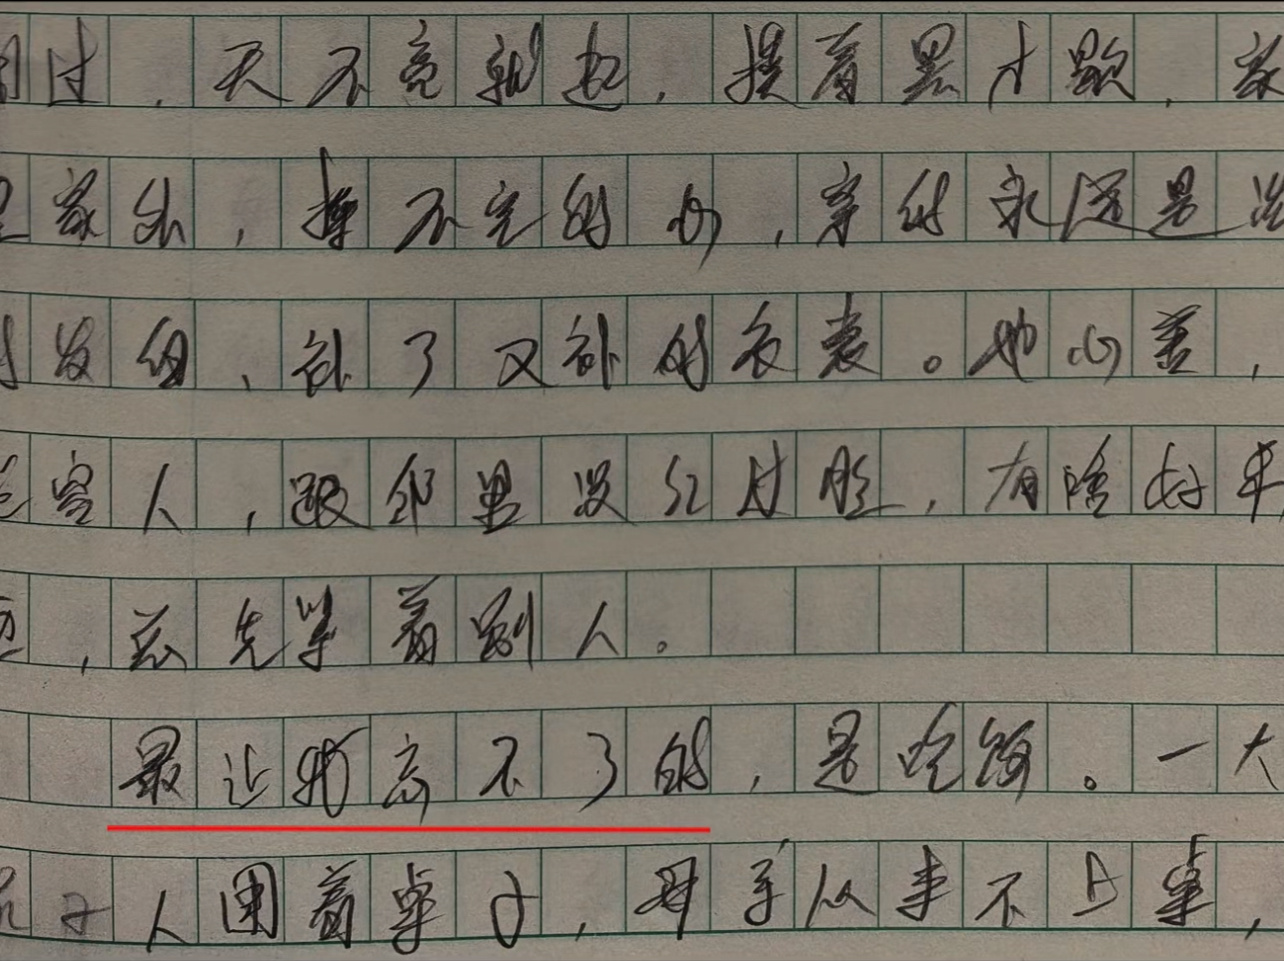 过，天不亮就起，摸着黑才歇，家
里家外，操不完的心，穿的永远是洗
得发白、补了又补的衣裳。她心善，
客人，跟邻里没红过脸，有啥好东
西，总先紧着别人。
最让我忘不了的，是吃饭。一大
家子人围着桌子，母亲从来不上桌，